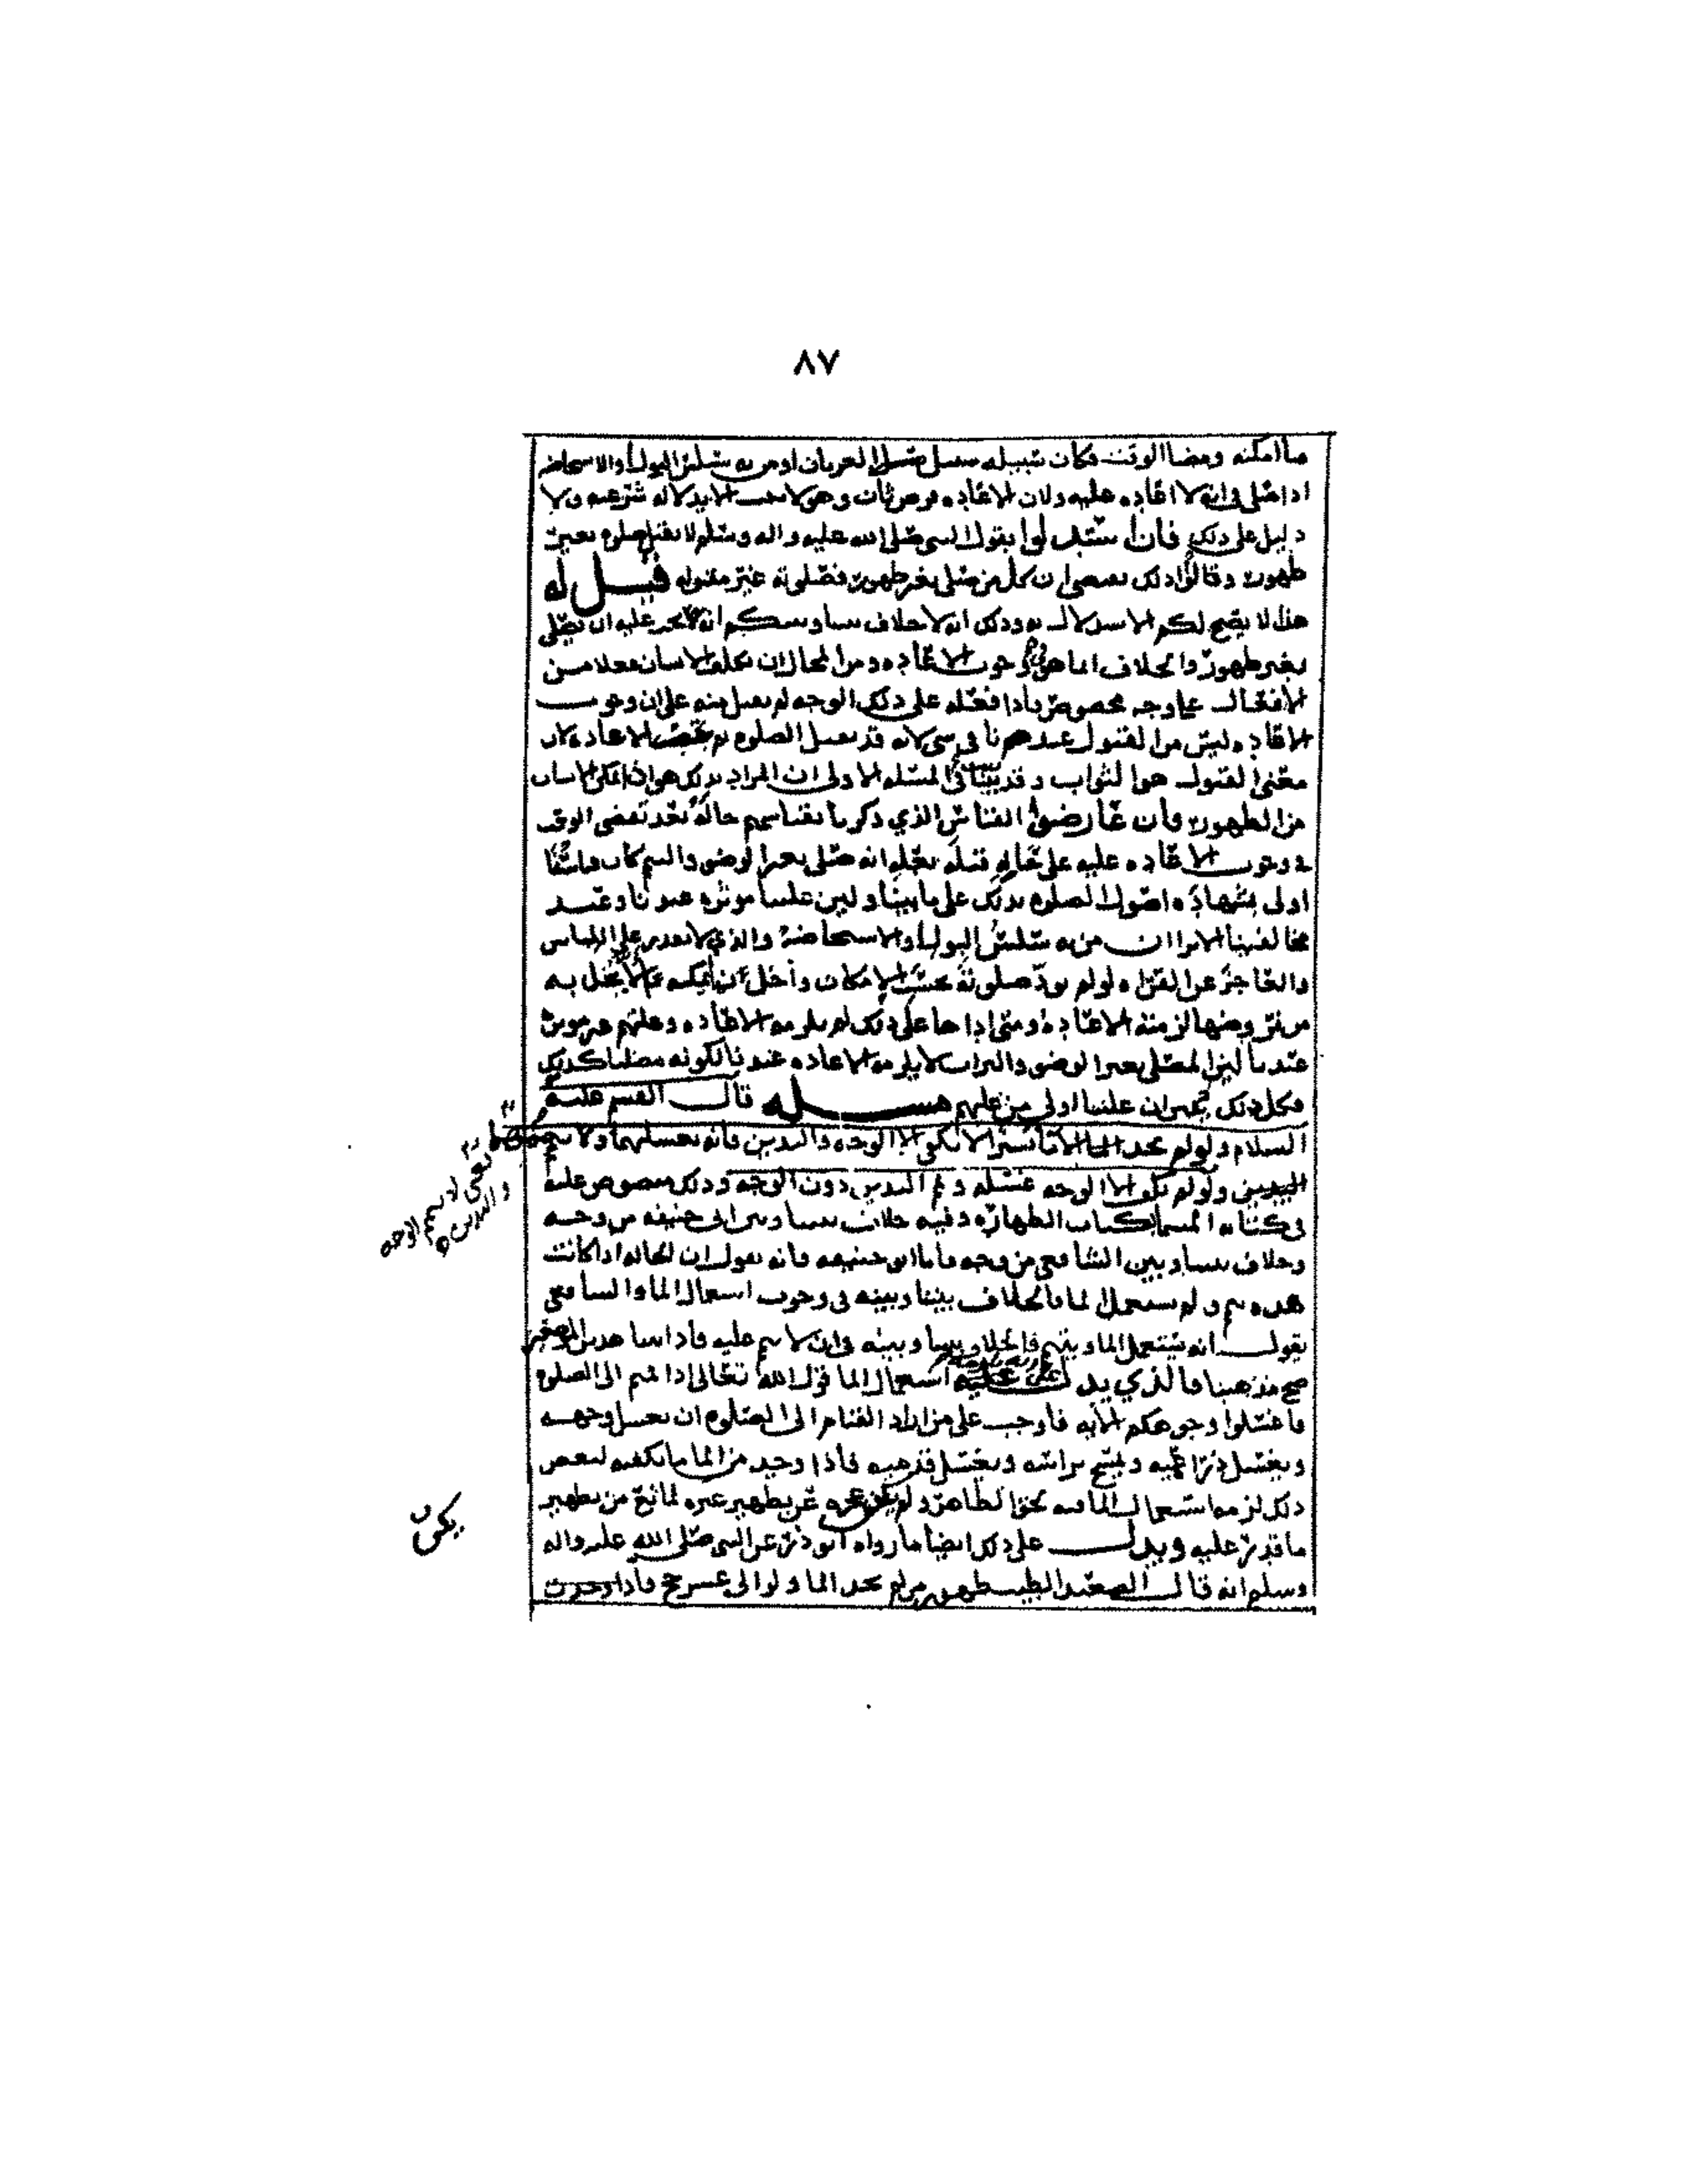 ٨٧
ما امكنه ومضا الوقت فكان سبيله سبيل العريان او من به سلس البول او الاستحاضه
اذا صلى في انه لا اعاده عليه ولان الاعاده فرض ثان وهو لا يجب الا بدلاله شرعيه ولا
دليل على ذلك فان استدلوا بقول النبي صلى الله عليه واله وسلم لا تقبل صلوه بغير
طهور وقالوا ذلك يقتضي ان كل من صلى بغير طهور فصلوته غير مقبوله قيل له
هذا لا يصح لكم الاستدلال به وذلك انه لا خلاف بيننا وبينكم انه عليه ان يصلي
بغير طهور وانما الخلاف انما هو في وجوب الاعاده ومن المحال ان يكلف الانسان فعلا من
الافعال على وجه مخصوص فاذا فعله على ذلك الوجه لم يقبل منه على ان وجوب
الاعاده ليس من القبول عندهم نا في شي لانه قد يقبل الصلوه ثم يجب الاعاده كان
معنى القبول هو الثواب وقد بينا في المسله الاولى ان المراد بذلك هو ان امكن الانسان
من الطهور فان عارضوا القياس الذي ذكرنا بقياسهم حاله بعد تقضي الوقت
في وجوب الاعاده عليه على حاله قبله بعله انه صلى بغير الوضو والتيمم كان قياسنا
اولى بشهاده اصول الصلوه بذلك على ما بينا ولان علتنا موثره عندنا وعند
مخالفينا الا ترا ان من به سلس البول او الاستحاضه والذي لا يقدر على اللباس
والعاجز عن القراه لو لم يود صلوته بحسب الامكان واخل ان يمكنه مما لا يخل به
من فروضها لزمته الاعاده ومتى اداها على ذلك لم يلزمه الاعاده وعلتهم غير موثره
عندنا لان المصلي بغير الوضو والتراب لا يلزمه الاعاده عندنا لكونه مصليا كذلك
فكل ذلك يبين ان علتنا اولى من علتهم مسله قال القسم عليه
السلام ولو لم يجد الما الا ما يسيرا لا يكفي الا الوجه واليدين فانه يغسلهما ولا ييمم
اليدين ولو لم يكف الا الوجه غسله ويمم اليدين دون الوجه وذلك منصوص عليه
في كتابه المسما بكتاب الطهاره وفيه خلاف بيننا وبين ابي حنيفه من وجه
وخلاف بيننا وبين الشافعي من وجه فاما ابو حنيفه فانه يقول ان الحاله اذا كانت
هذه يمم ولم يستعمل الما فالخلاف بيننا وبينه في وجوب استعمال الما والشافعي
يقول انه يستعمل الما ويتيمم فالخلاف بيننا وبينه في ان لا تيمم عليه فاذا اثبتنا هذين الموضعين
صح مذهبنا فالذي يدل على وجوب استعمال الما قول الله تعالى اذا قمتم الى الصلوه
فاغسلوا وجوهكم الايه فاوجب على من اراد القيام الى الصلوه ان يغسل وجهه
ويغسل ذراعيه ويمسح براسه ويغسل قدميه فاذا وجد من الما ما يكفيه لبعض
ذلك لزمه استعمال الما فيه بحق الظاهر ولم يكن عجزه عن تطهير غيره لمانع من تطهير
ما قدر عليه ويدل على ذلك ايضا ما رواه ابو ذر عن النبي صلى الله عليه واله
وسلم انه قال الصعيد الطيب طهور من لم يجد الما ولو الى عشر حجج فاذا وجدت
يعني لا ييمم الوجه
واليدين
يكن